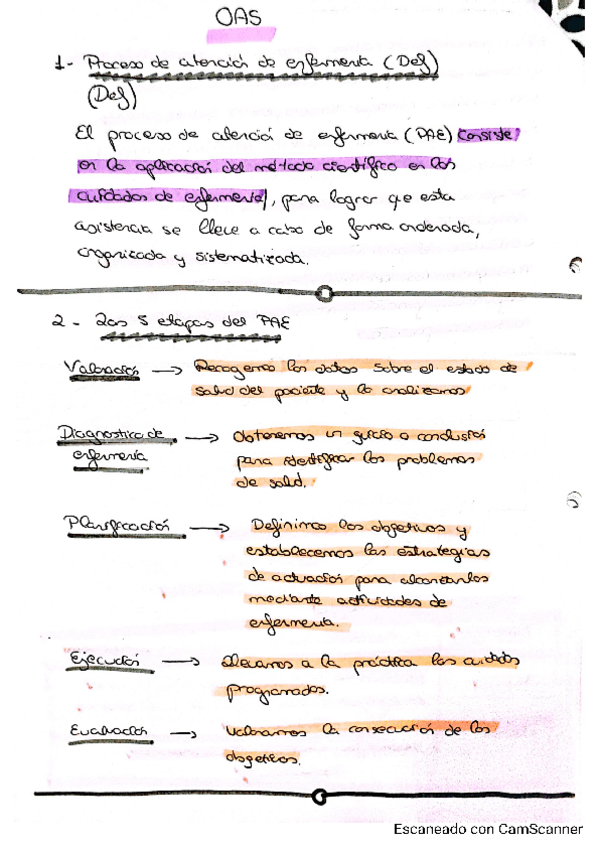 OAS
1- Proceso de atención de enfermería (Def)
(Def)
El proceso de atención de enfermería (PAE) consiste
en la aplicación del método científico en los
cuidados de enfermería, para lograr que esta
asistencia se lleve a cabo de forma ordenada,
organizada y sistematizada.
2- Las 5 etapas del PAE
Valoración → Recogemos los datos sobre el estado de
salud del paciente y lo analizamos
Diagnostico de → Obtenemos un juicio o conclusión
enfermería para identificar los problemas
de salud.
Planificación → Definimos los objetivos y
establecemos las estrategias
de actuación para alcanzarlos
mediante actividades de
enfermería.
Ejecución → Llevamos a la práctica los cuidados
programados.
Evaluación → Valoramos la consecución de los
objetivos.
Escaneado con CamScanner